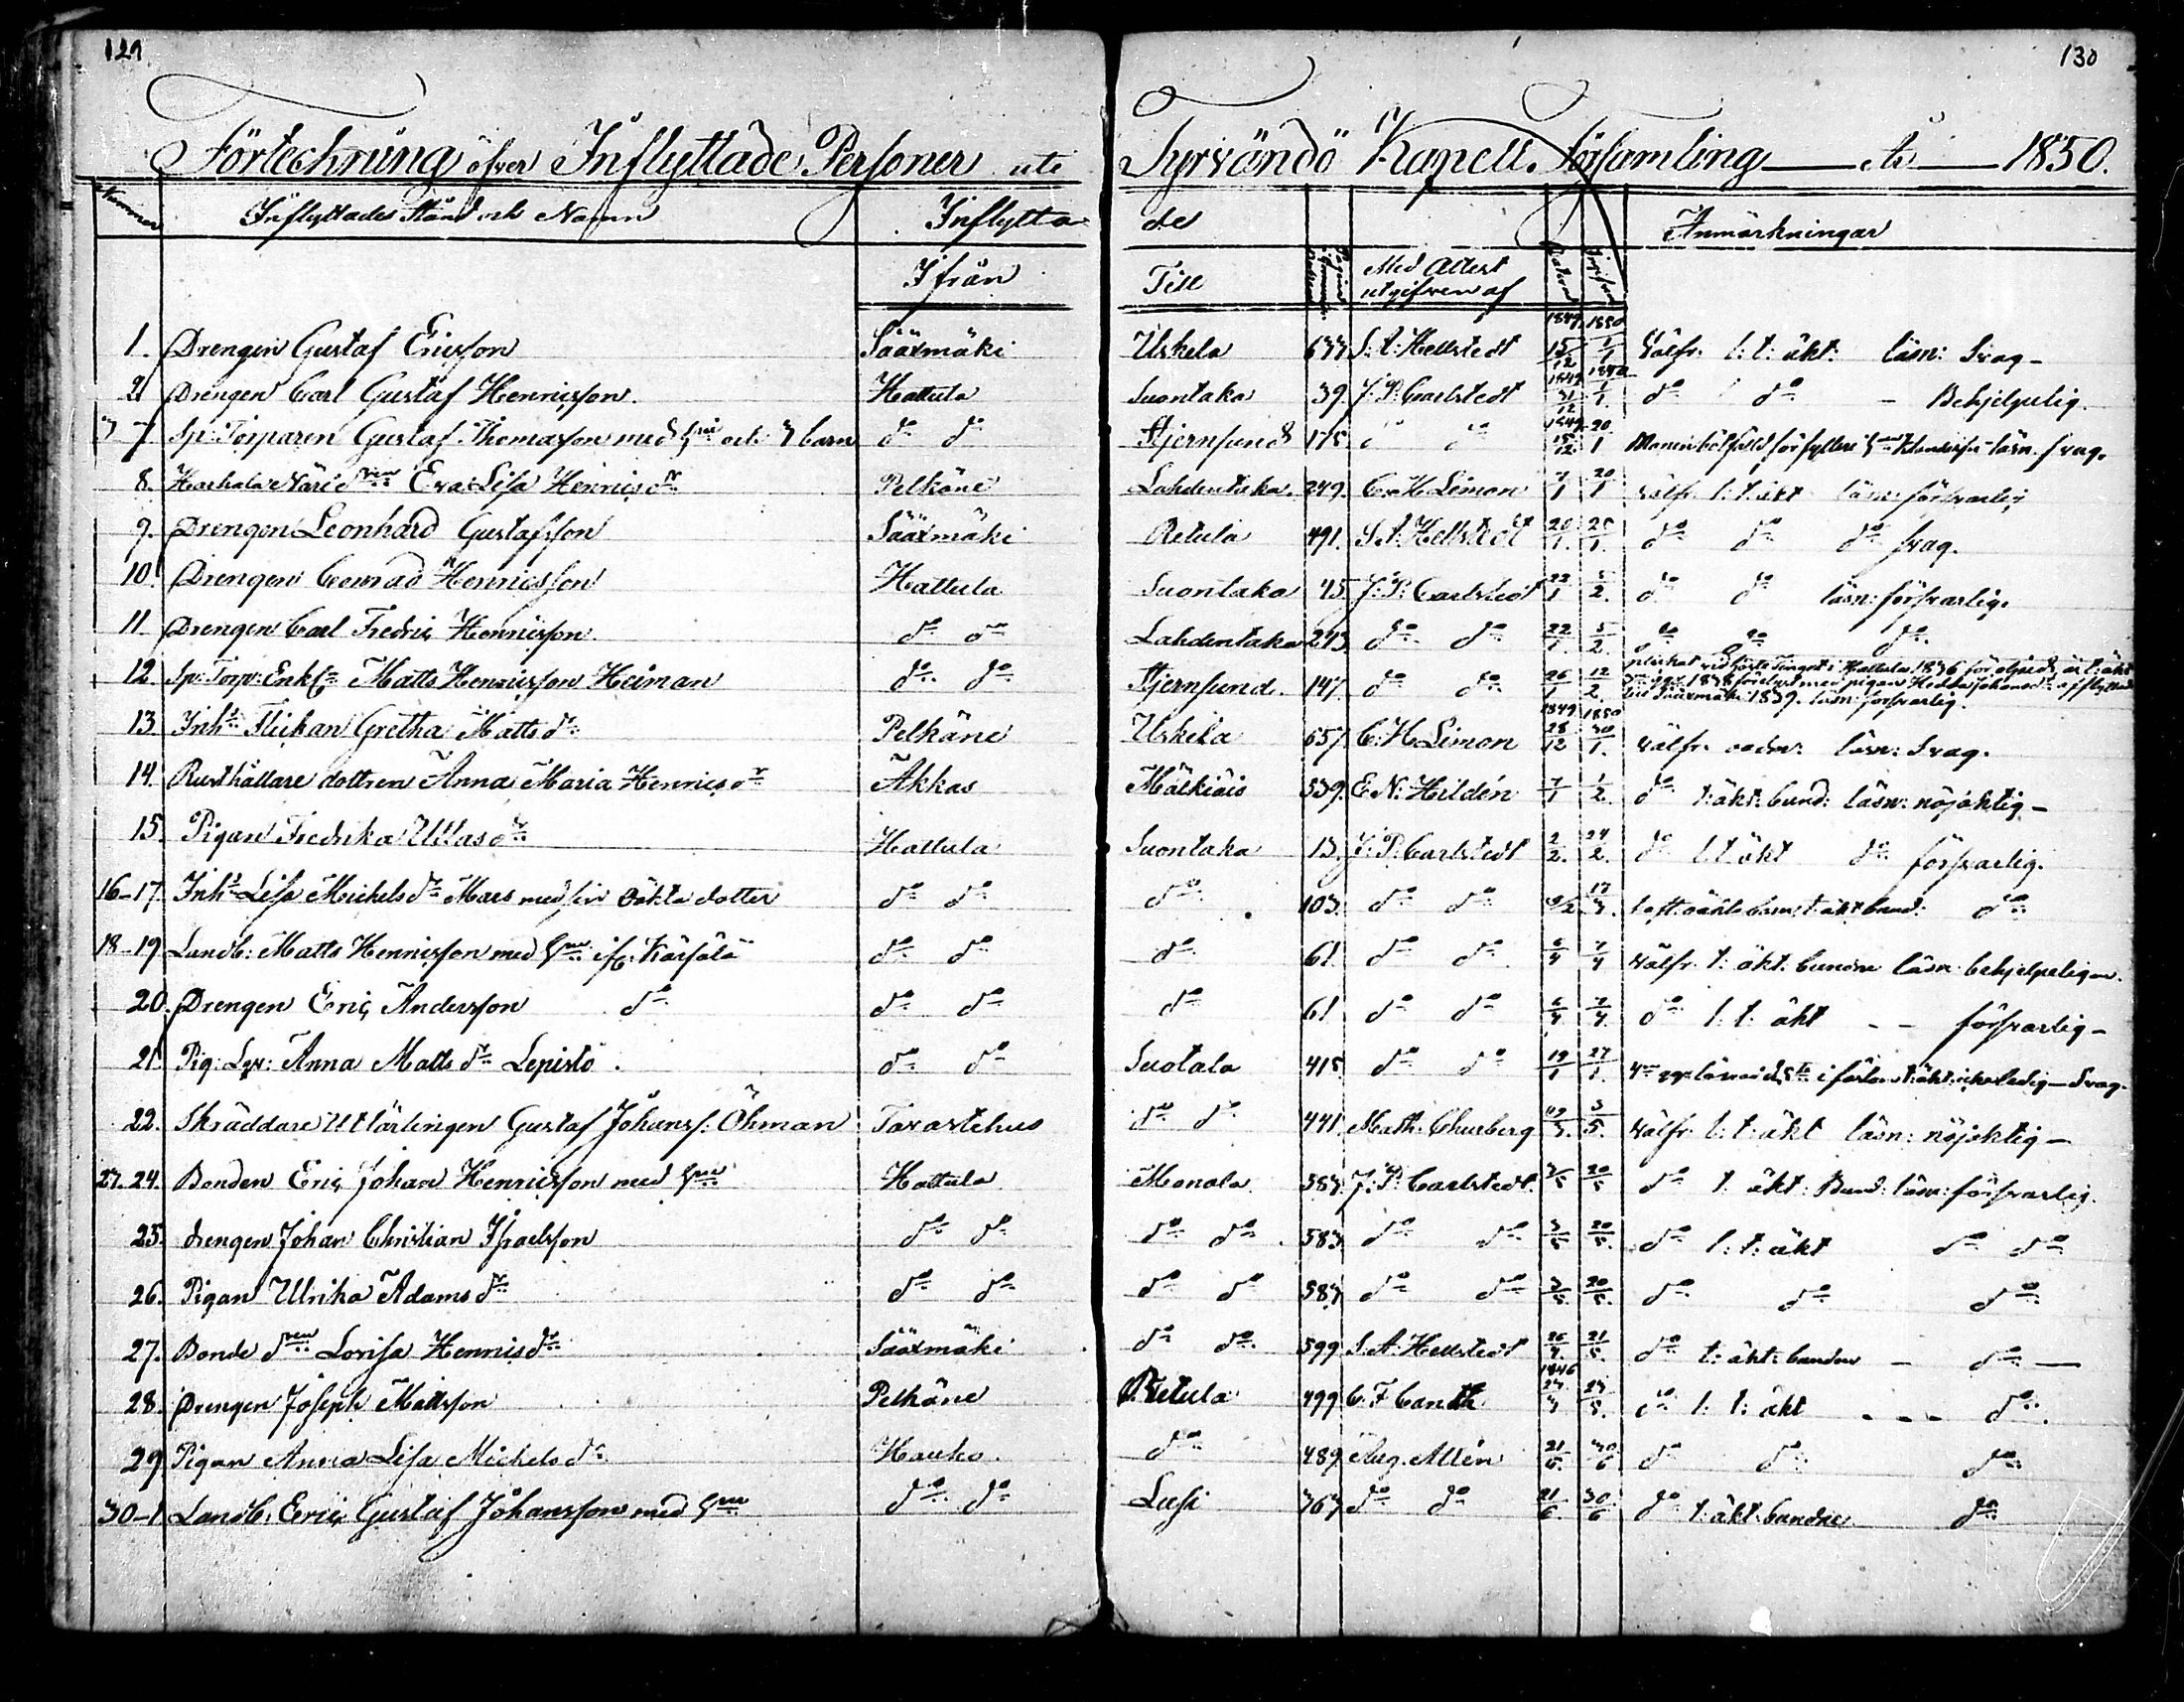 129
130
Förteckning öfver Inflyttade Personer uti Tyrvändö Kapell Församling År 1850.
Nummer Inflyttades Stånd och Namn Inflytta de Anmärkningar
Ifrån Till Med Attest utgifven af
1. Drengen Gustaf Ericsson Sääxmäki Uskela 637 S: A: Hellstedt 1849 15/12 1850 1/1 Välfr: l: t: äkt: läsn: Svag -
2. Drengen Carl Gustaf Henricsson. Hattula Suontaka 39. J: P: Carlstedt 1849 31/12 1/1. do do - Behjelpelig.
3-7. Sp: Torparen Gustaf Thomasson med Hu och 3 barn do do Stjernsund 175. do do 1849 15/12 20/1 läsn. svag.
8. Eva Lisa Henricsdr Pelkäne Lahdentaka. 249. C. H. Limon 7/1 20/1 välfr. l: t: äkt läsn: försvarlig
9. Drengen Leonhard Gustafsson Sääxmäki Retula 491. S. A. Hellstedt 20/1. 25/1. do do do svag.
10. Drengen Conrad Henricsson Hattula Suontaka 45. J: P: Carlstedt 22/1 5/2. do do läsn: försvarlig.
11. Drengen Carl Fredric Henricsson do do Lahdentaka 243 do do 22/1. 5/2. do do do
12. Sp: Torp: Enkl: Matts Henricsson Heiman do do Stjernsund. 147. do do 26/1 12/2. till Sääxmäki 1839. läsn: försvarlig.
13. Inhs Flickan Gretha Mattsdr Pelkäne Uskela 657. C. H. Limon 1849 28/12 1850 30/1. välfr. läsn: Svag.
14. Rusthållare dottren Anna Maria Henricsdr Akkas Mälkiäis 539. E. N: Hildén 7/1 1/2. do t: äkt: bund: läsn: nöjaktig -
15. Pigan Fredrika Ullasdr Hattula Suontaka 13. J. P. Carlstedt 2/2. 24/2. do l. t äkt do försvarlig.
16-17. Inhs Lisa Michelsdr Mars med sin oäkta dotter do do do 103. do do 17/3. do
18-19 Landb: Matts Henricsson med Hu ifr: Kärsälä do do do 61. do do 6/4 7/4 välfr. t: äkt: bundne läsn: behjelpeligen.
20. Drengen Eric Andersson do do do do 61 do do 6/4. 7/4. do l: t: äkt - - försvarlig -
21. Pig: Anna Mattsdr Lepistö. do do Suotala 415 do do 19/1 27/1. Svag.
22. Skräddare Utlärlingen Gustaf Johanss: Öhman Tavastehus do do 441. Math: Churberg 3/5. Välfr: l: t: äkt läsn: nöjaktig -
23. 24. Bonden Eric Johan Henricsson med Hu Hattula Monola 583. J: P: Carlstedt. 3/5 20/5 do t: äkt: Bund: läsn: försvarlig.
25. drengen Johan Christian Israelsson do do do do 583. do do 3/5 20/5. do l: t: äkt do do
26. Pigan Ulrika Adamsdr do do do do 583 do do 3/5. 20/5. do do do
27. Bonde dren Lovisa Henricsdr Sääxmäki do do 599 S. A: Hellstedt 26/4. 21/5. do t: äkt: bunden - do -
28. Drengen Joseph Mattsson Pelkäne Retula 499 C. F Canth 1846 do l: t: äkt - - - do
29 Pigan Anna Lisa Michelsdr Hauho. do 489. Aug. Allén 21/6. 30/6 do do do
30-1. Landb: Eric Gustaf Johansson med Hu do do Lusi 767 do do 21/6. 30/6 do t: äkt: bundne do